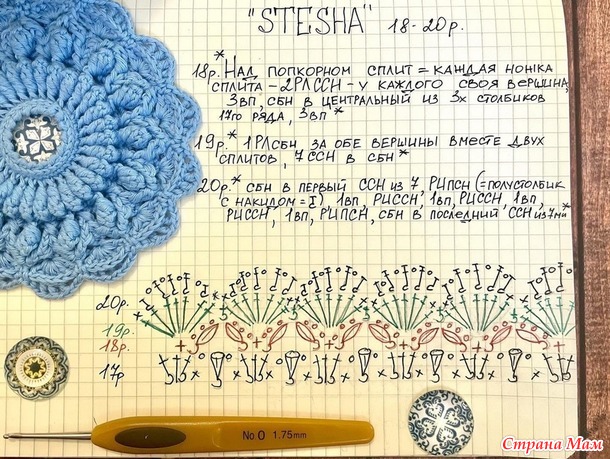 "STESHA" 18-20р.
18р.*Над попкорном сплит = каждая ножка
сплита - 2РЛССН - у каждого своя вершина,
3вп, сбн в центральный из 3х столбиков
17го ряда, 3вп*
19р.* 1РЛсбн за обе вершины вместе двух
сплитов, 7ССН в сбн*
20р.* сбн в первый ССН из 7, РИПСН (=полустолбик
с накидом = ) 1вп, РИССН, 1вп, РИССН, 1вп,
РИССН, 1вп, РИПСН, сбн в последний ССН из 7ми*
20р.
19р.
18р.
17р
3 3 3 3 3 3
No 0 1.75mm
Страна Мам